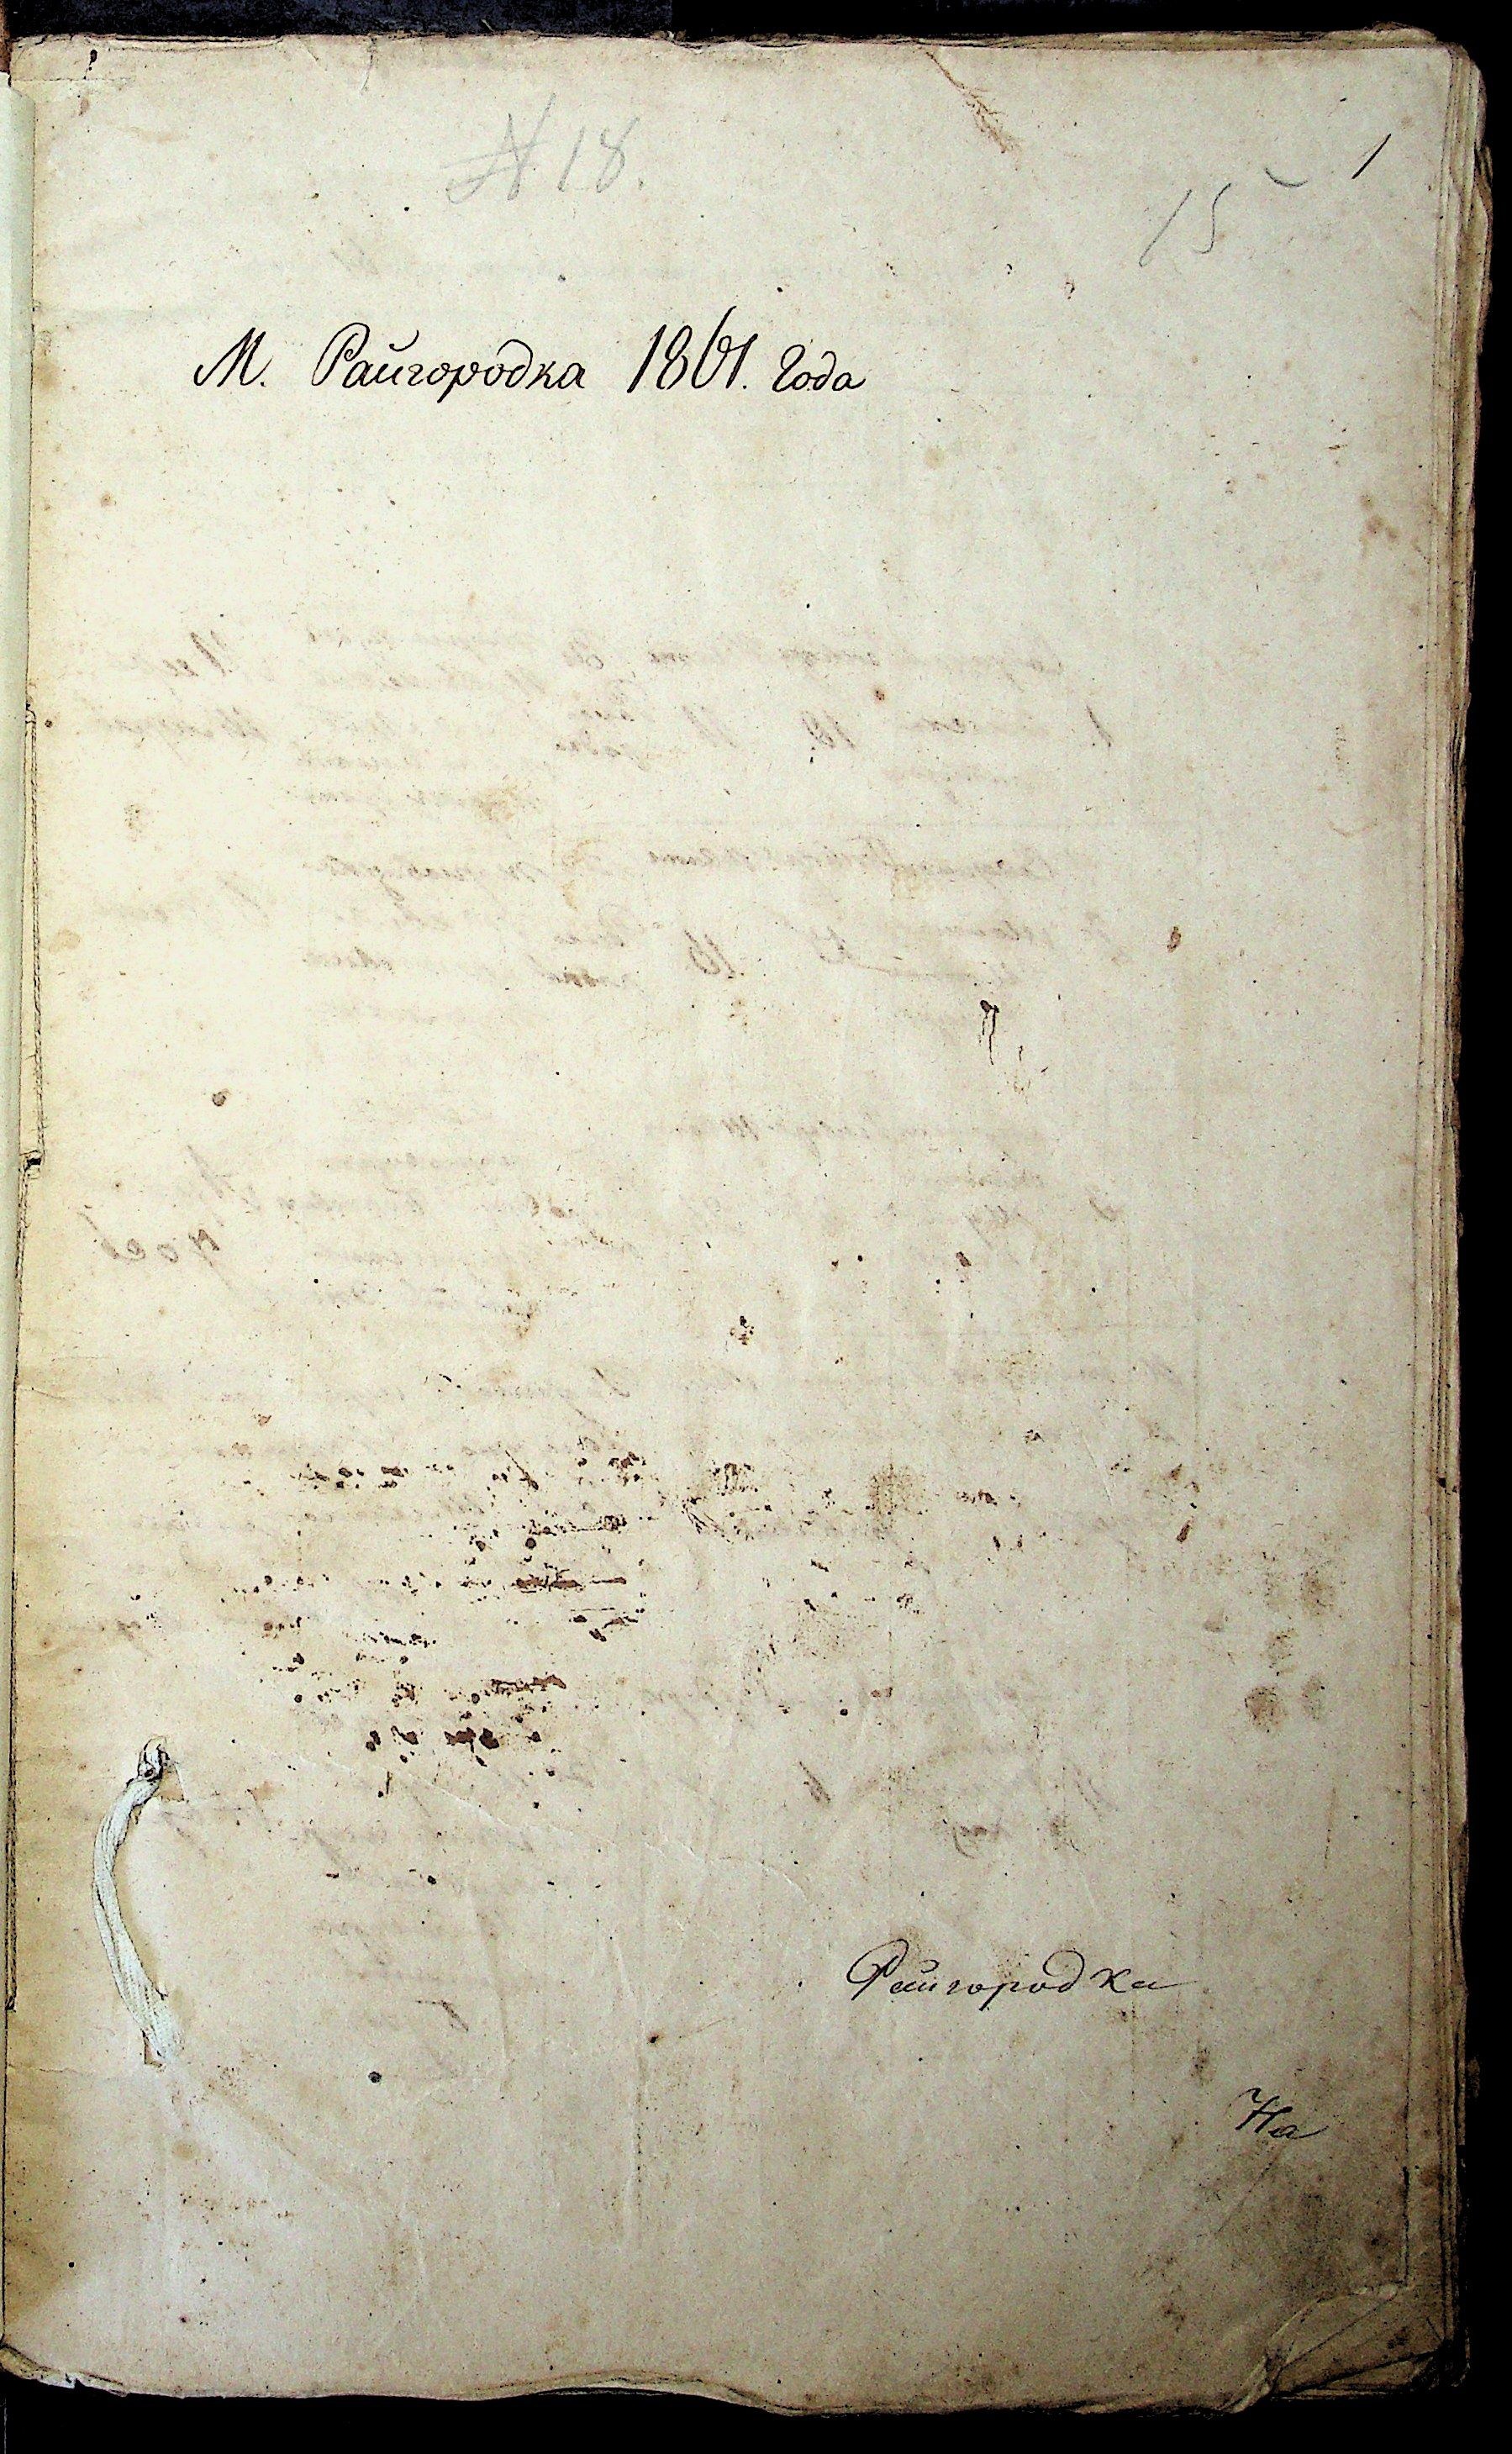 № 18.
1
15
М. Райгородка 1861. Года
Райгородка
На